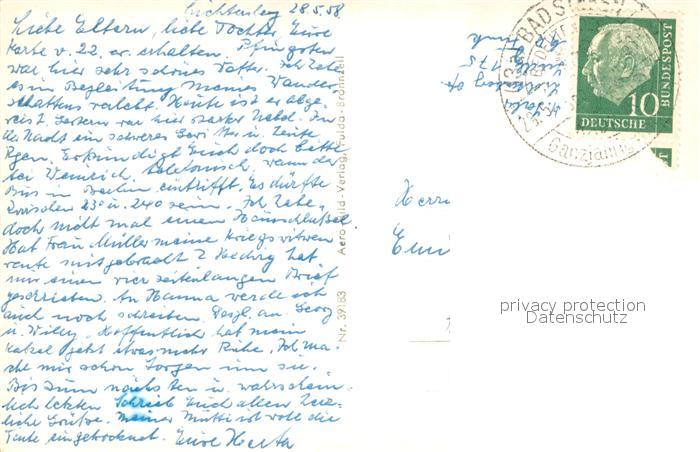 Lichtenberg 28.5.58.
Liebe Eltern, liebe Tochter, Eure
Karte v. 22. er. erhalten. Pfingsten
war hier sehr schönes Wetter. Ich habe
es in Begleitung meines Wander-
schattens verlebt. Heute ist er abge-
reist. Gestern war hier starker Nebel. In
der Nacht ein schweres Gewitter u. heute
Regen. Erkundigt Euch doch bitte
bei Wenrich, telefonisch, wann der
Bus in Berlin eintrifft. Es dürfte
zwischen 23° u. 24° sein. Ich habe
doch nicht mal einen Hausschlüssel
Hat Frau Müller meine Kriegswitwen
rente mitgebracht? Hedwig hat
mir einen vier seitenlangen Brief
geschrieben. An Hanna werde ich
auch noch schreiben. Desgl. an Georg
u. Willy. Hoffentlich hat mein
jetzt etwas mehr Ruhe. Ich ma-
che mir schon Sorgen um sie.
Bis zum nächsten u. wahrschein-
lich letzten Schrieb Euch allen herz-
liche Grüße. Meiner Mutti ist wohl die
Tinte eingetrocknet. Eure Herta
Nr. 39183 Aero-Bild-Verlag, Fulda-Bronnzell
BAD
Ganzjährig
10
DEUTSCHE
BUNDESPOST
Herrn
Emi
privacy protection
Datenschutz